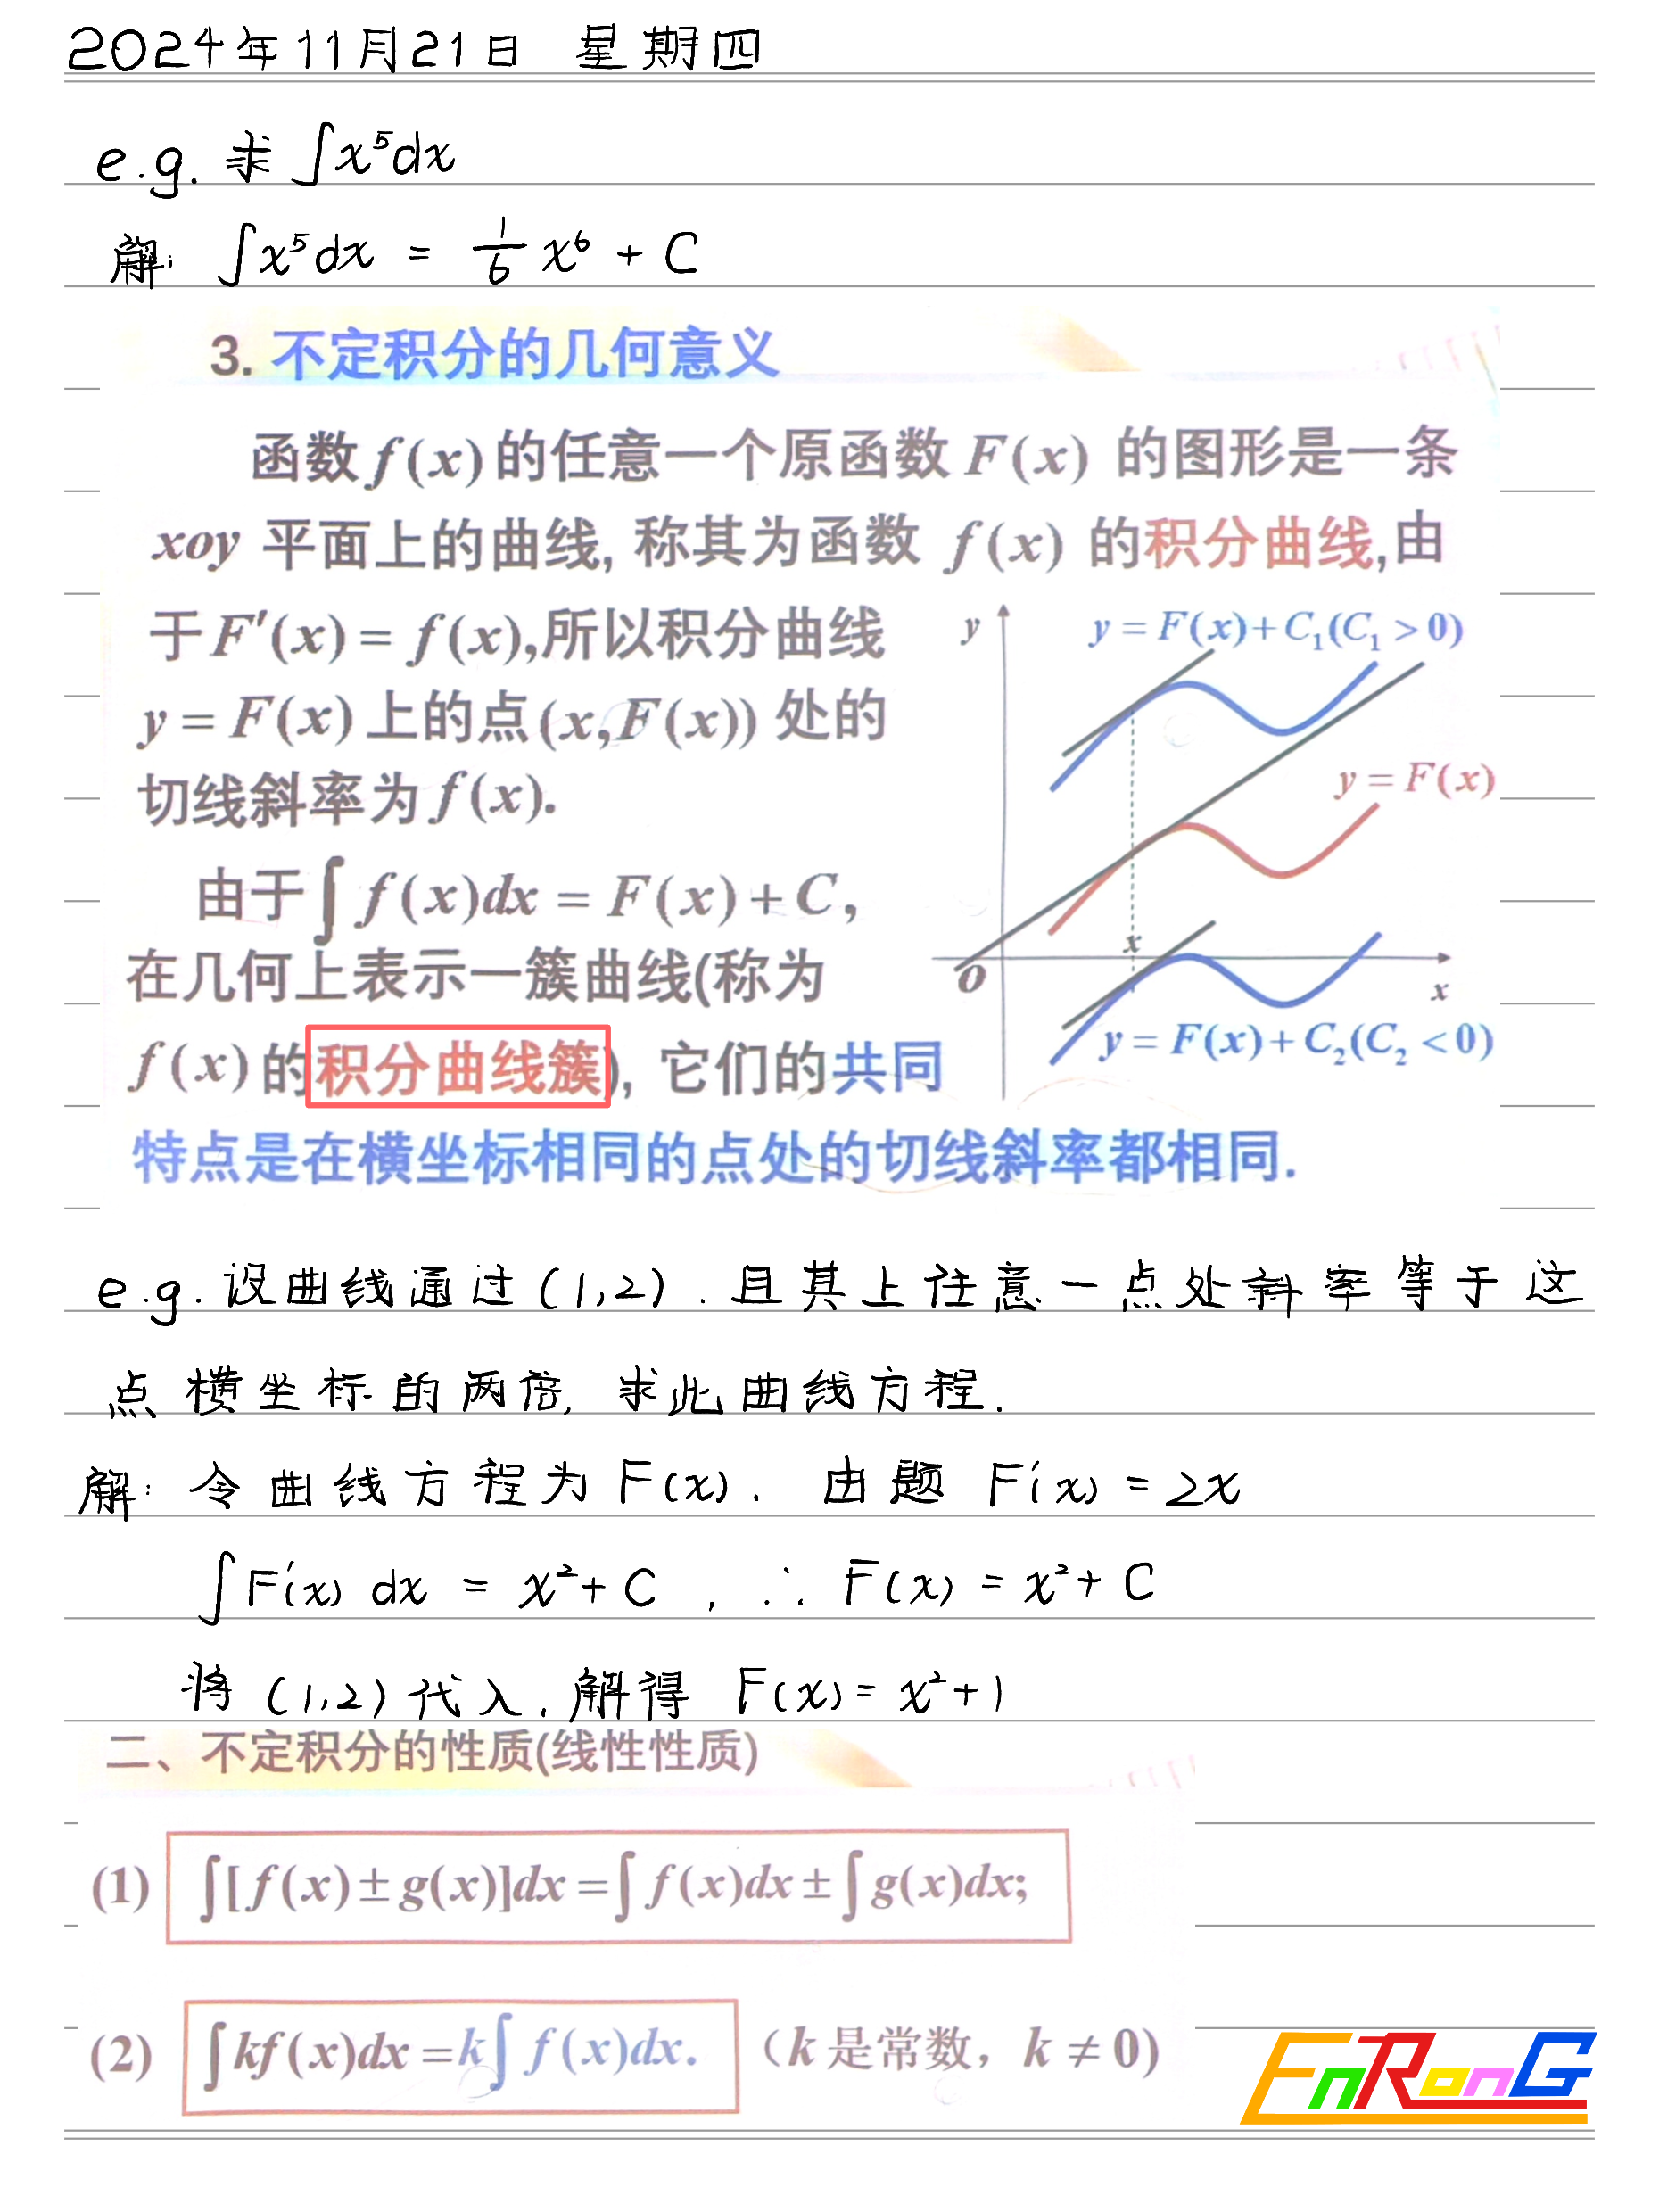 2024年11月21日 星期四
e.g. 求 ∫x⁵dx
解: ∫x⁵dx = 1/6 x⁶ + C
3. 不定积分的几何意义
函数 f(x) 的任意一个原函数 F(x) 的图形是一条
xoy 平面上的曲线, 称其为函数 f(x) 的积分曲线,由
于 F′(x) = f(x),所以积分曲线
y = F(x) 上的点 (x,F(x)) 处的
切线斜率为 f(x).
由于 ∫ f(x)dx = F(x) + C,
在几何上表示一簇曲线(称为
f(x) 的积分曲线簇), 它们的共同
特点是在横坐标相同的点处的切线斜率都相同.
y
y = F(x)+C₁(C₁ > 0)
y = F(x)
x
O
x
y = F(x)+C₂(C₂ < 0)
e.g. 设曲线通过 (1,2). 且其上任意一点处斜率等于这
点横坐标的两倍, 求此曲线方程.
解: 令曲线方程为 F(x). 由题 F′(x) = 2x
∫F′(x) dx = x² + C , ∴ F(x) = x² + C
将 (1,2) 代入, 解得 F(x) = x² + 1
二、不定积分的性质(线性性质)
(1) ∫[f(x) ± g(x)]dx = ∫ f(x)dx ± ∫ g(x)dx;
(2) ∫kf(x)dx = k∫ f(x)dx. (k 是常数, k ≠ 0)
EnRonG